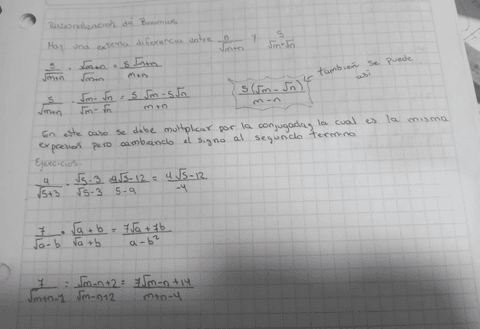 Racionalización de Binomios
Hay una extensa diferencia entre 5/√m+n y 5/√m-√n
5/√m+n · √m+n/√m+n = 5√m+n/m+n
5/√m+√n · √m-√n/√m-√n = 5√m-5√n/m+n
5(√m-√n)/m-n
también se puede
asi
En este caso se debe multiplicar por la conjugada, la cual es la misma
expresión pero cambiando el signo al segundo termino
Ejercicios:
4/√5+3 · √5-3/√5-3 = 4√5-12/5-9 = 4√5-12/-4
7/√a-b · √a+b/√a+b = 7√a+7b/a-b²
7/√m+n-2 : √m-n+2/√m-n+2 = 7√m-n+14/m+n-4